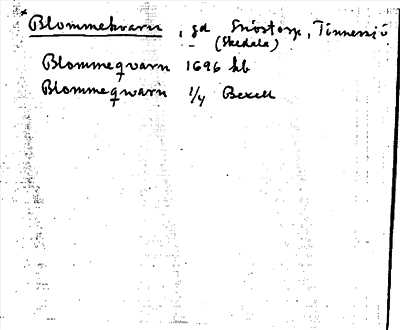 Blommekvarn, gd Snöstorp, Tinnersjö
(Skedala)
Blommeqvarn 1696 kb
Blommeqwarn 1/4 Bexell